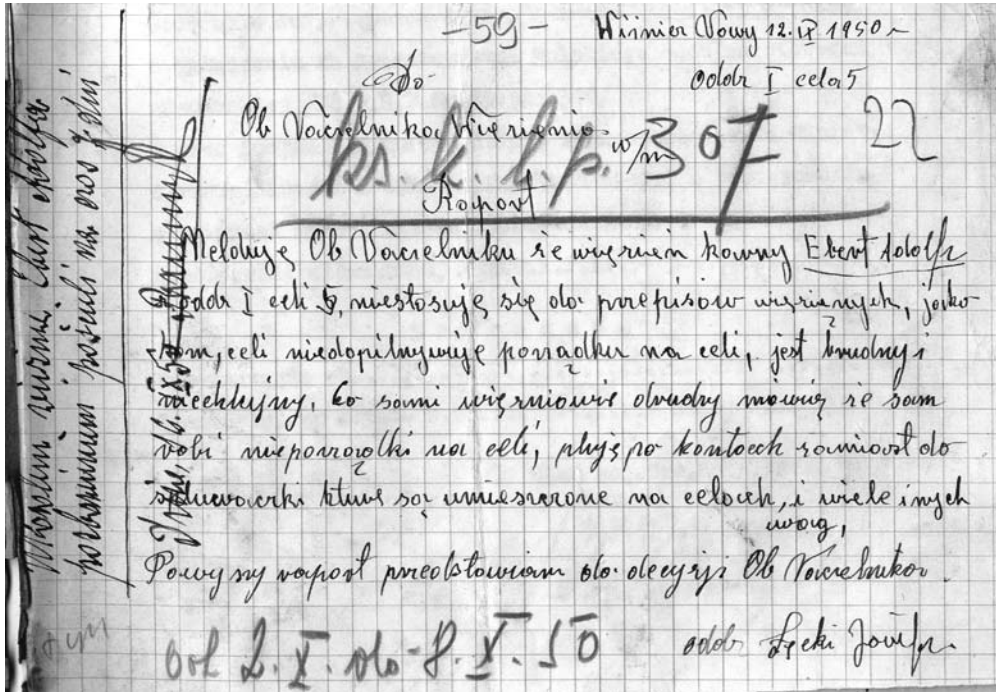 - 59 -
Wiśnicz Nowy 12.IX 1950 r
Do
oddz I cela 5
Ob Naczelnika Więzienia w/m
ks. k. k. p. 307
22
Raport
Melduję Ob Naczelniku że więzień karny Ebert Adolf
oddz I celi 5, niestosuję się do przepisów więzienych, jako
tom, celi niedopilnywuję porządku na celi, jest brudny i
niechlujny, bo sami więzniowie dradzy mówią ze sam
robi nieporządki na celi, pluję po kontach zamiast do
spluwaczki kture są umieszczone na celach, i wiele inych
uwag,
Powyszy raport przedstawiam do decyzji Ob Naczelnika.
od 2.X. do 8.X.50
oddz Łęcki Józef
pozbawieniem pościeli na czas 7 dni